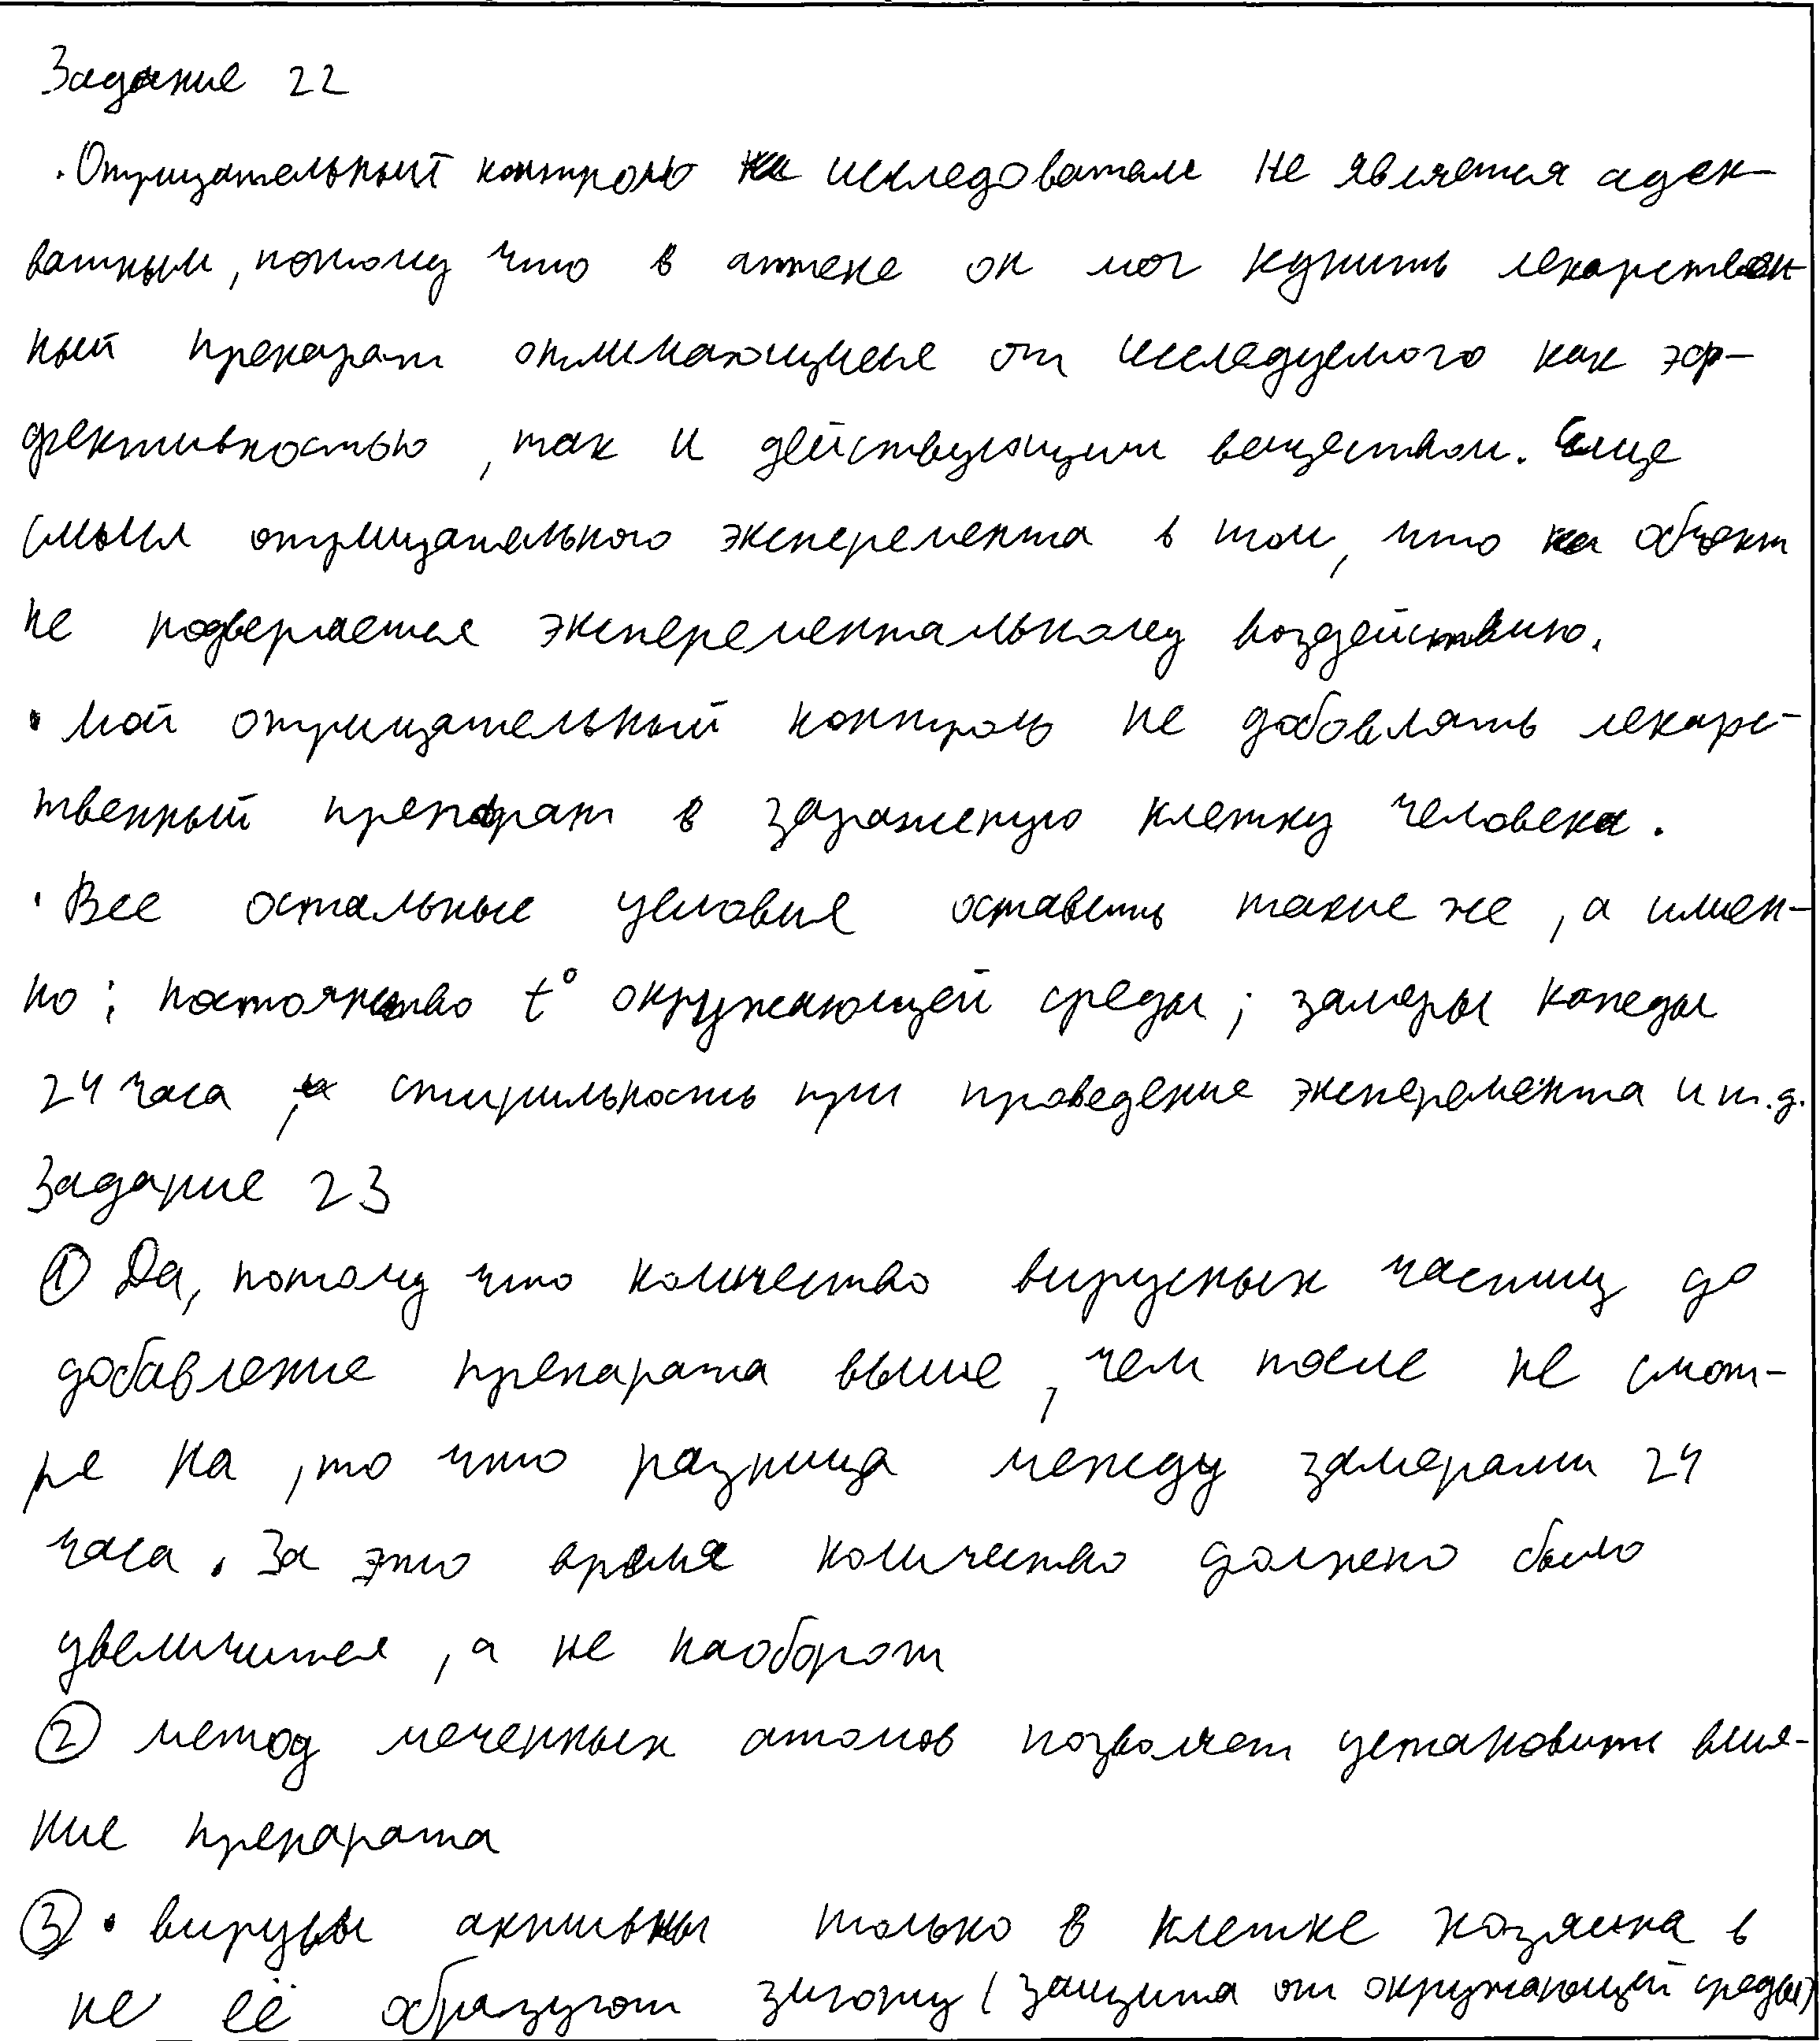 Задание 22
. Отрицательный контроль исследователя не является адек-
ватным, потому что в аптеке он мог купить лекарствен
ный препарат отличающиеся от исследуемого как эф-
фективностью, так и действующим веществом. Еще
смысл отрицательного эксперемента в том, что на объект
не подвергается эксперементальному воздействию.
• Мой отрицательный контроль не добовлять лекарс-
твенный препарат в зараженую клетку человека.
• Все остальные условие оставить такие же, а имен-
но: постоянство t° окружающей среды; замеры каждые
24 часа, стирильность при проведение эксперемента и т.д.
Задание 23
① Да, потому что количество вирусных частиц до
добавление препарата выше, чем после не смот-
ре на, то что разница между замерами 24
часа. За это время количество должно было
увеличится, а не наоборот
② метод меченных атомов позволяет установить влия-
ние препарата
③ • вирусы активны только в клетке хозяина в
не её образуют зиготу (защита от окружающей среды)